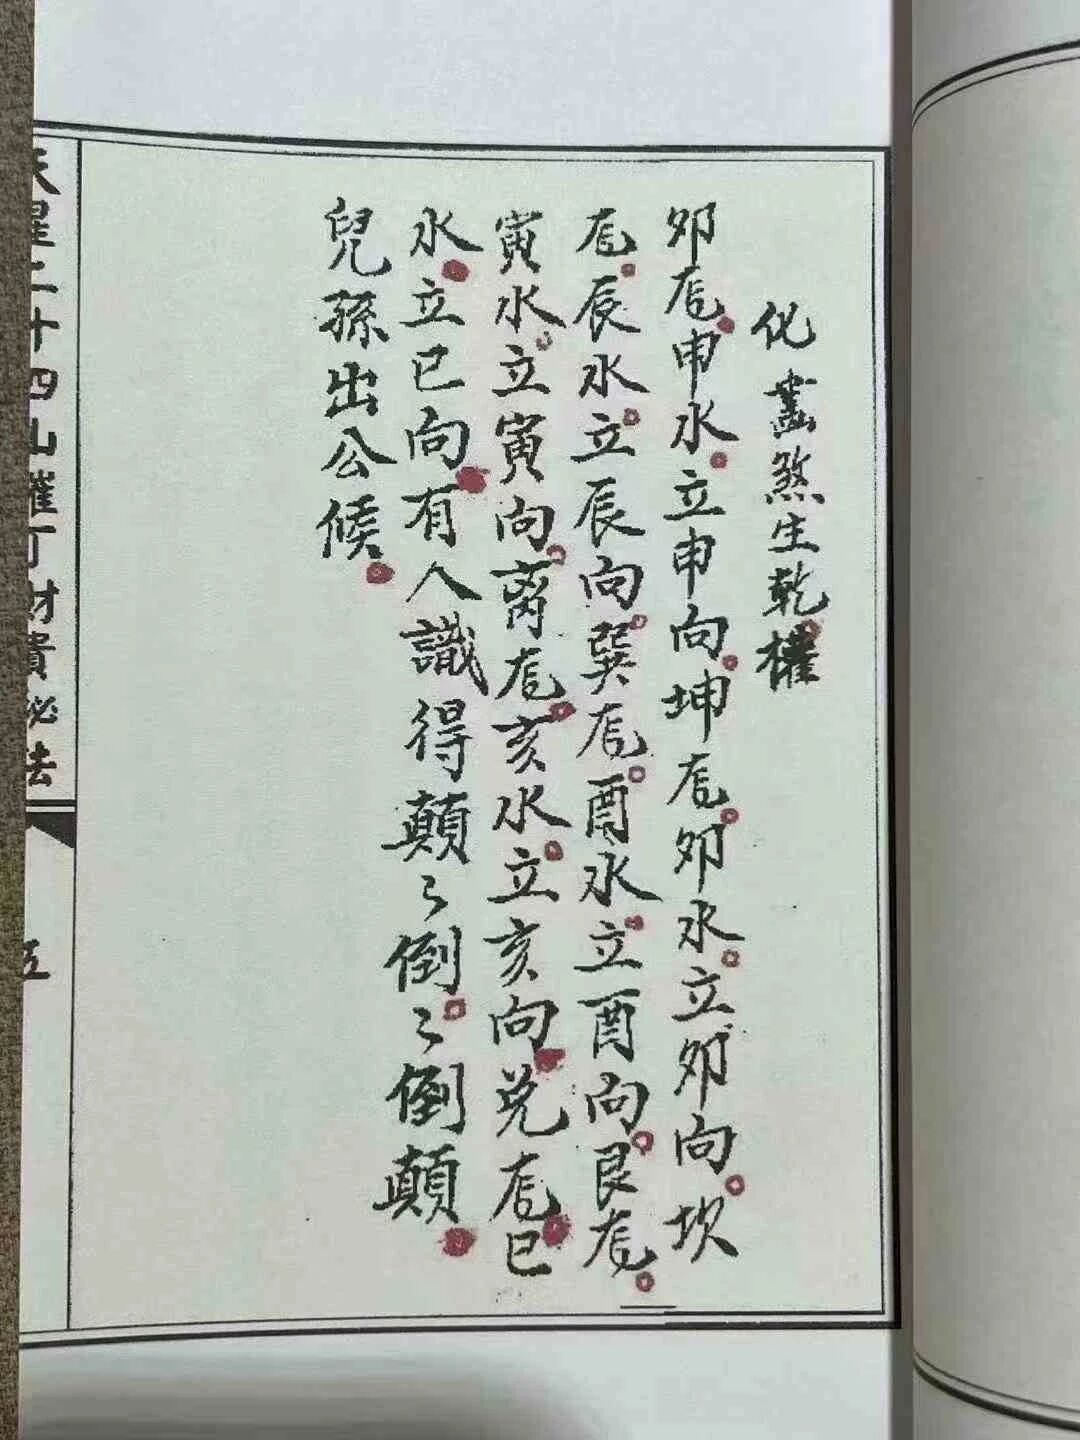 化煞生乾。權
夘龙。申水。立申向。坤龙。夘水。立夘向。坎
龙。辰水。立辰向。巽龙。酉水。立酉向。艮龙。
寅水。立寅向。离龙。亥水。立亥向。兑龙。巳
水。立巳向。有人識得顛〻倒。〻倒顛。
兒孫出公候。
天星二十四山催丁財貴秘法
五